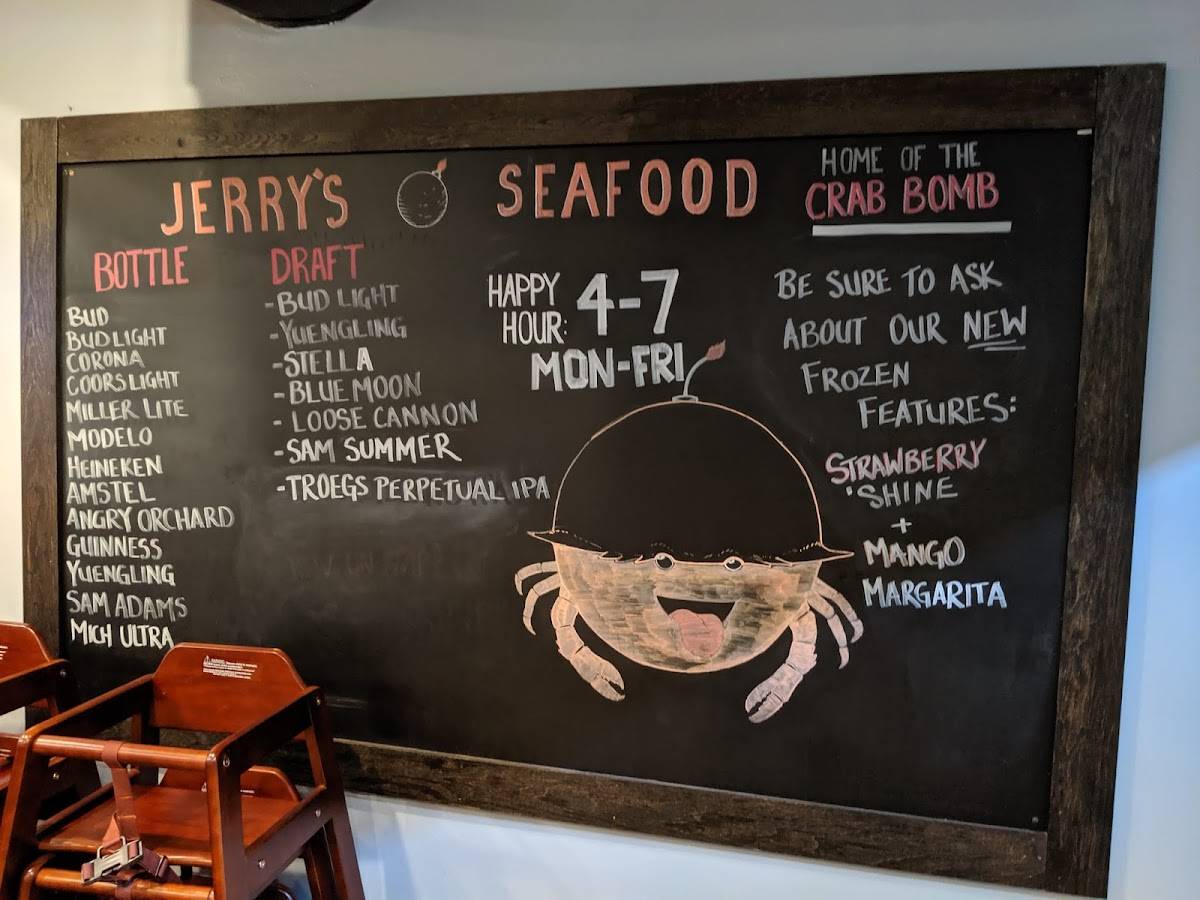 JERRY'S SEAFOOD
HOME OF THE
CRAB BOMB
BOTTLE
BUD
BUD LIGHT
CORONA
COORS LIGHT
MILLER LITE
MODELO
HEINEKEN
AMSTEL
ANGRY ORCHARD
GUINNESS
YUENGLING
SAM ADAMS
MICH ULTRA
DRAFT
-BUD LIGHT
-YUENGLING
-STELLA
-BLUE MOON
- LOOSE CANNON
-SAM SUMMER
-TROEGS PERPETUAL IPA
HAPPY
HOUR: 4-7
MON-FRI
BE SURE TO ASK
ABOUT OUR NEW
FROZEN
FEATURES:
STRAWBERRY
'SHINE
+
MANGO
MARGARITA